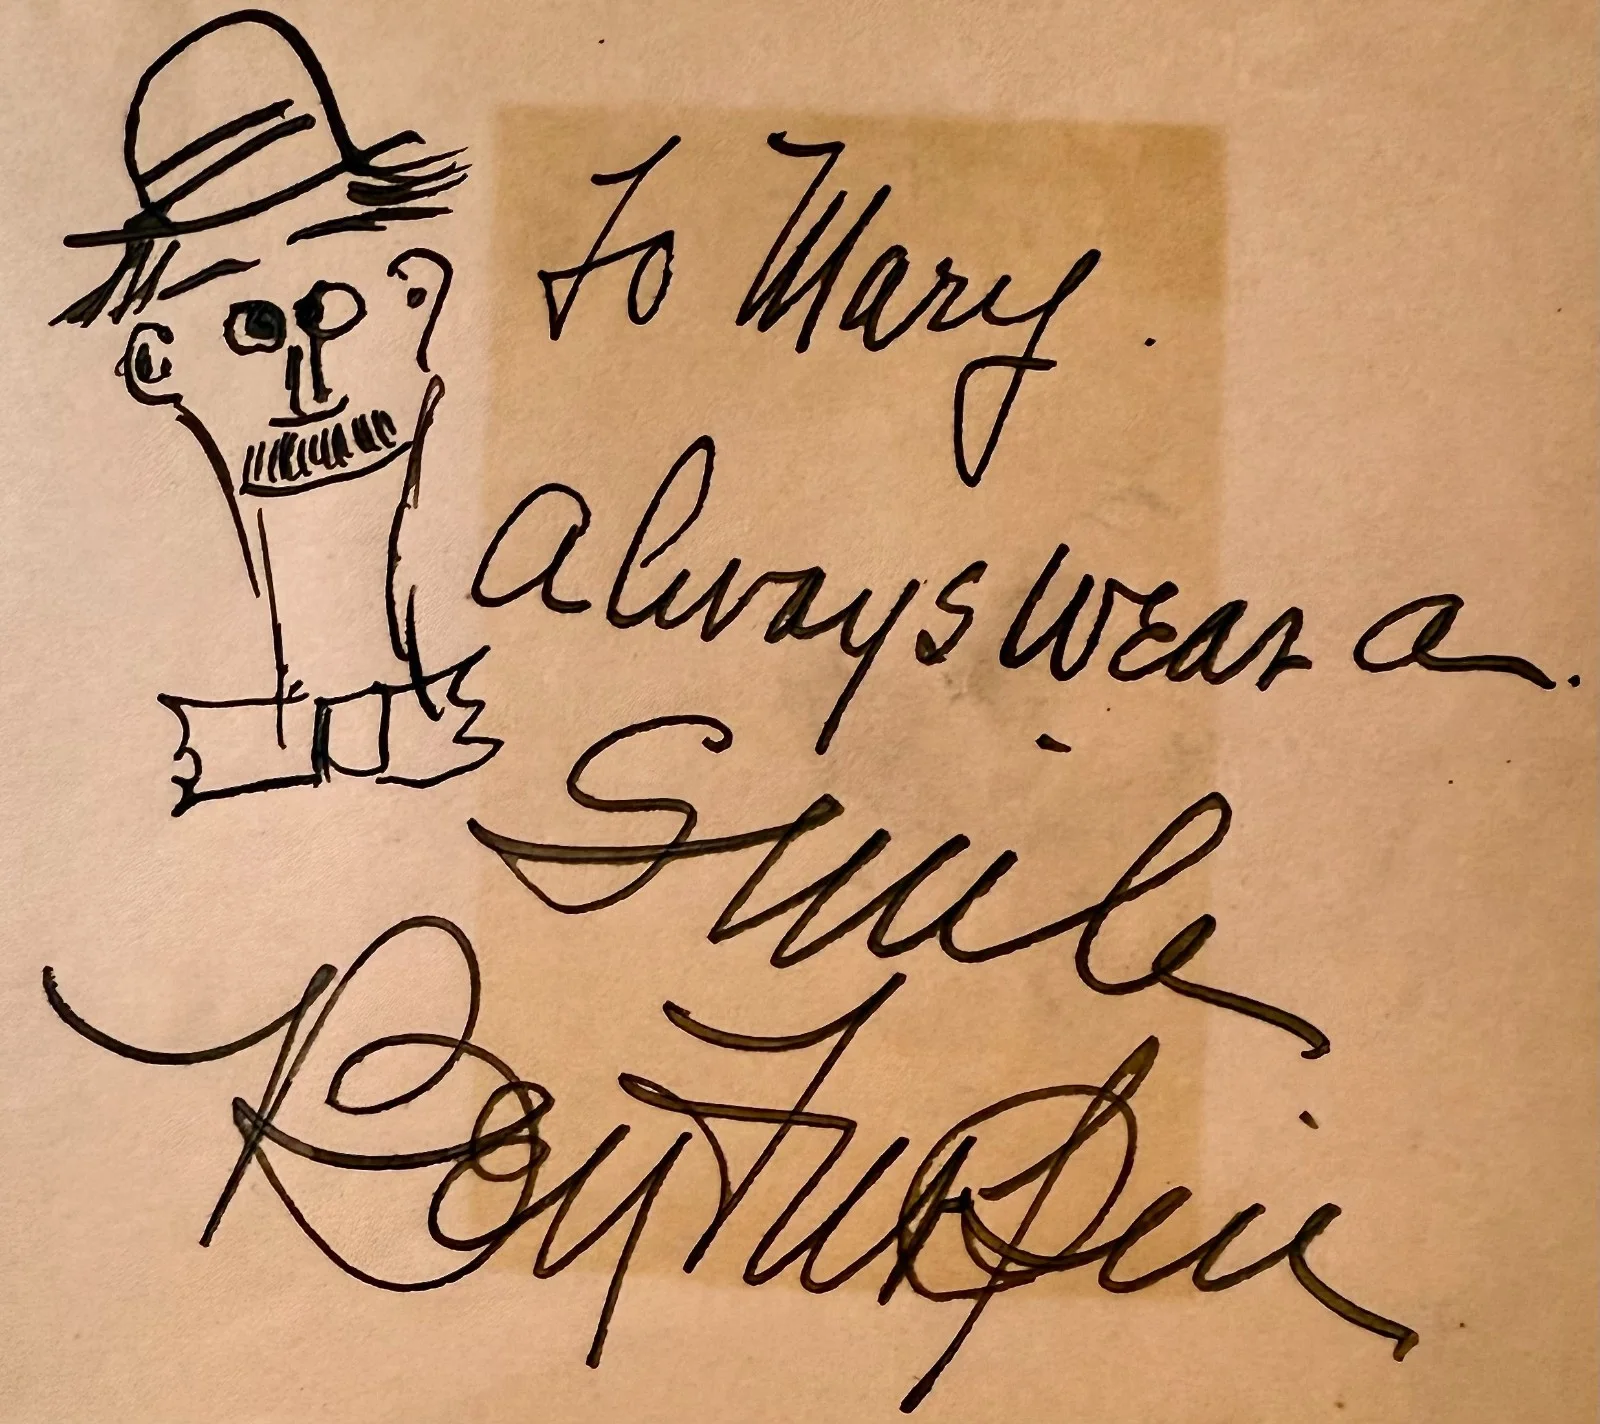 To Mary.
Always wear a.
Smile
Roy Turpin